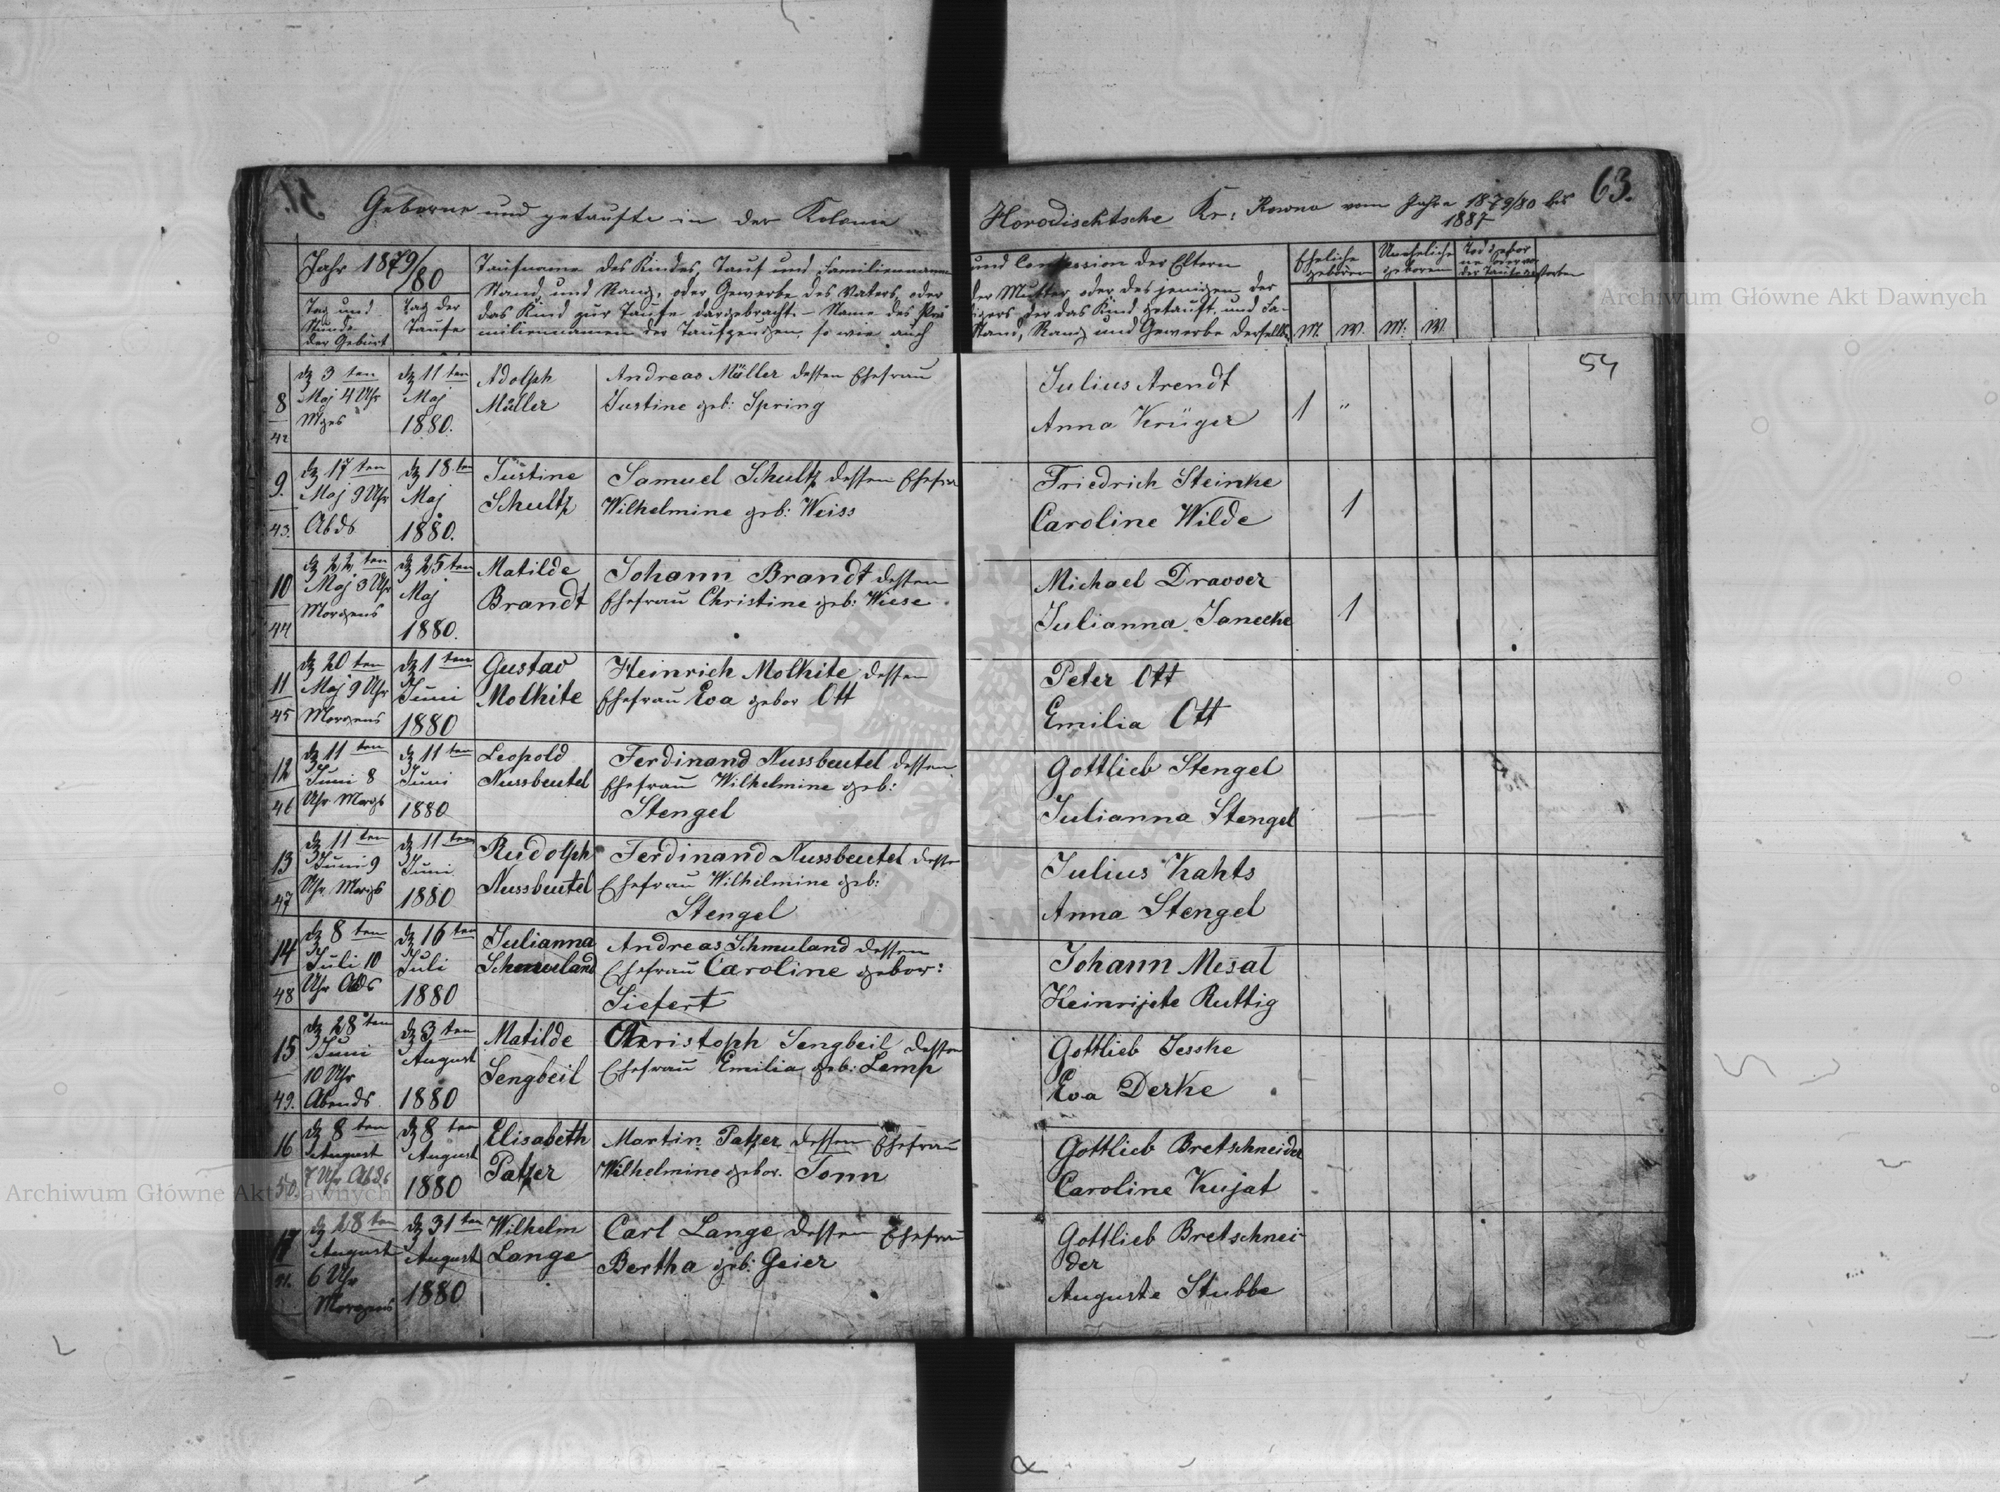 Geborne und getaufte in der Kolonie
Horodischtsche Kr: Rowno vom Jahre 1879/80 bis
1887
63.
54
Jahr 1879/80
Tag und
Stunde
der Geburt
Tag der
Taufe
Taufname des Kindes, Tauf und Familienname
Stand und Rang, oder Gewerbe des Vaters, oder
das Kind zur Taufe dargebracht. Name des
miliennamen der Taufzeugen, so wie auch
und Confession der Eltern
der Mutter oder des jenigen der
der das Kind getauft, und Fa-
Stand, Rang und Gewerbe derselb
Eheliche
geboren
Uneheliche
geboren
Tod gebor
der Taufe gestorben
M. W. M. W.
8
42
d 3 ten
Maj 4 Uhr
Mgs
d 11 ten
Maj
1880.
Adolph
Müller
Andreas Müller dessen Ehefrau
Justine geb: Spring
Julius Arendt
Anna Krüger
1 "
9.
43.
d 17 ten
Maj 9 Uhr
Abds
d 18 ten
Maj
1880.
Justine
Schultz
Samuel Schultz dessen Ehefra
Wilhelmine geb: Weiss
Friedrich Steinke
Caroline Wilde
1
10
44
d 22 ten
Maj 3 Uhr
Morgens
d 25 ten
Maj
1880.
Matilde
Brandt
Johann Brandt dessen
Ehefrau Christine geb: Wiese.
Michael Drawer
Julianna Janecke
1
11
45
d 20 ten
Maj 9 Uhr
Morgens
d 1 ten
Juni
1880
Gustav
Molkite
Heinrich Molkite dessen
Ehefrau Eva gebor Ott
Peter Ott
Emilia Ott
12
46
d 11 ten
Juni 8
Uhr Morgs
d 11 ten
Juni
1880
Leopold
Nussbeutel
Ferdinand Nussbeutel dessen
Ehefrau Wilhelmine geb:
Stengel
Gottlieb Stengel
Julianna Stengel
13
47
d 11 ten
Juni 9
Uhr Morgs
d 11 ten
Juni
1880
Rudolph
Nussbeutel
Ferdinand Nussbeutel desse
Ehefrau Wilhelmine geb:
Stengel
Julius Kahts
Anna Stengel
14
48
d 8 ten
Juli 10
Uhr Abds
d 16 ten
Juli
1880
Julianna
Schmuland
Andreas Schmuland dessen
Ehefrau Caroline gebor:
Siefert
Johann Mesal
Heinrijete Ruttig
15
49.
d 28 ten
Juni
10 Uhr
Abends
d 3 ten
August
1880
Matilde
Sengbeil
Christoph Sengbeil dessen
Ehefrau Emilia geb: Lemp
Gottlieb Jesske
Eva Derke
16
50.
d 8 ten
August
7 Uhr Abds
d 8 ten
August
1880
Elisabeth
Patzer
Martin Patzer dessen Ehefrau
Wilhelmine gebor. Tonn
Gottlieb Bretschneider
Caroline Kujat
17
51.
d 28 ten
August
6 Uhr
Morgens
d 31 ten
August
1880
Wilhelm
Lange
Carl Lange dessen Ehefrau
Bertha geb: Geier
Gottlieb Bretschnei-
der
Auguste Stubbe
Archiwum Główne Akt Dawnych
Archiwum Główne Akt Dawnych